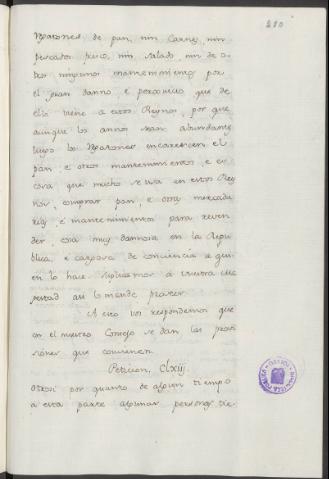 280
Regatones de pan, nin Carne, nin
pescado fresco, nin salado, nin de o
tros ningunos mantenimientos por
el gran danno e perjuicio que de
ello viene a estos Reynos, por que
aunque los annos sean abundante
luego los Regatones encarescen el
pan e otros mantenimientos, e es
cosa que mucho se usa en estos Rey
nos, comprar pan, e otra mercadu
rias, e mantenimientos para reven
der, cosa muy dannosa en la Repu
blica, e cargosa de conciencia a qui
en lo hace suplicamos a vuestra ma
gestad asi lo mande proveer.
A esto vos respondemos que
en el nuestro Consejo se dan las provi
siones que convienen.
Peticion, Clxiij.
Otrosi por quanto de algun tiempo
a esta parte algunas personas tie